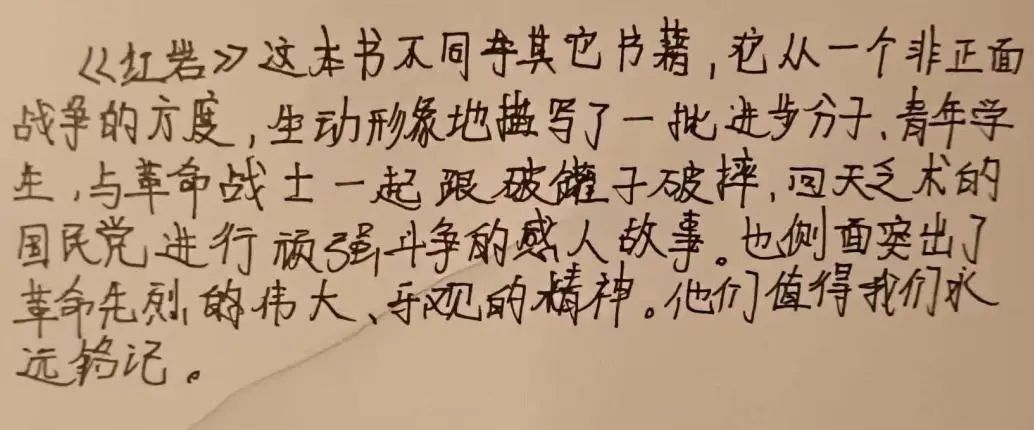 《红岩》这本书不同于其它书籍，它从一个非正面
战争的方度，生动形象地描写了一批进步分子、青年学
生，与革命战士一起跟破罐子破摔，回天乏术的
国民党进行顽强斗争的感人故事。也侧面突出了
革命先烈的伟大、乐观的精神。他们值得我们永
远铭记。